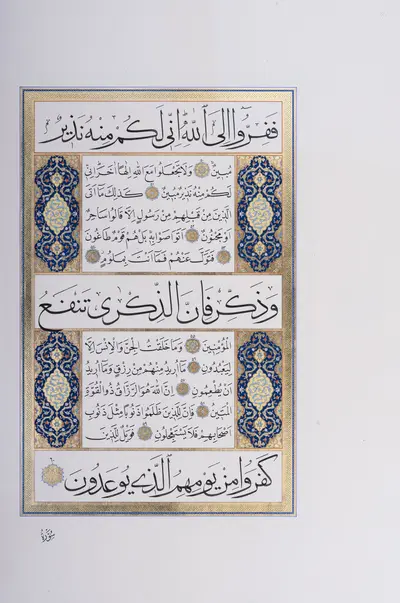 فَفِرُّوا إِلَى اللَّهِ إِنِّي لَكُم مِنْهُ نَذِيرٌ
مُبِينٌ وَلَا تَجْعَلُوا مَعَ اللَّهِ إِلَهًا آخَرَ إِنِّي
لَكُم مِنْهُ نَذِيرٌ مُبِينٌ كَذَلِكَ مَا أَتَى
الَّذِينَ مِن قَبْلِهِم مِن رَسُولٍ إِلَّا قَالُوا سَاحِرٌ
أَوْ مَجْنُونٌ أَتَوَاصَوْا بِهِ بَلْ هُمْ قَوْمٌ طَاغُونَ
فَتَوَلَّ عَنْهُمْ فَمَا أَنتَ بِمَلُومٍ
وَذَكِّرْ فَإِنَّ الذِّكْرَى تَنفَعُ
الْمُؤْمِنِينَ وَمَا خَلَقْتُ الْجِنَّ وَالْإِنسَ إِلَّا
لِيَعْبُدُونِ مَا أُرِيدُ مِنْهُم مِن رِزْقٍ وَمَا أُرِيدُ
أَن يُطْعِمُونِ إِنَّ اللَّهَ هُوَ الرَّزَّاقُ ذُو الْقُوَّةِ
الْمَتِينُ فَإِنَّ لِلَّذِينَ ظَلَمُوا ذَنُوبًا مِثْلَ ذَنُوبِ
أَصْحَابِهِمْ فَلَا يَسْتَعْجِلُونِ فَوَيْلٌ لِلَّذِينَ
كَفَرُوا مِن يَوْمِهِمُ الَّذِي يُوعَدُونَ
سورة